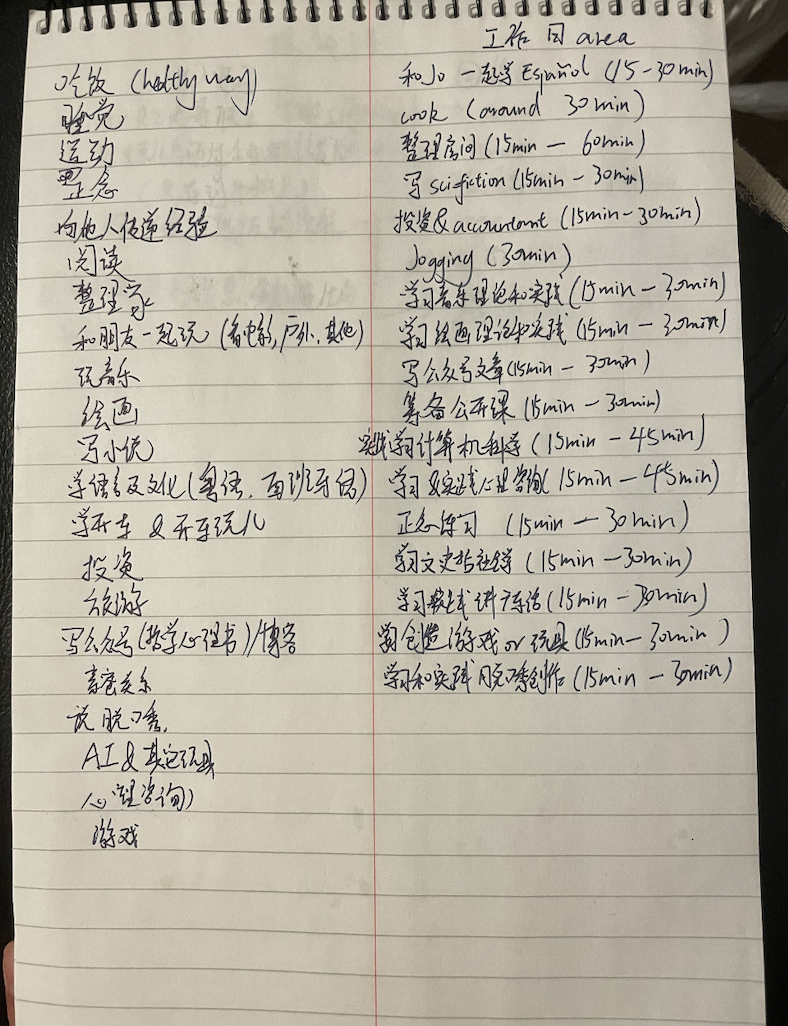 吃饭 (healthy way)
睡觉
运动
正念
向他人传递经验
阅读
整理家
和朋友一起玩 (看电影, 户外, 其他)
玩音乐
绘画
写小说
学语言及文化 (粤语, 西班牙语)
学开车 & 开车玩儿
投资
旅游
写公众号 (哲学心理书) / 博客
亲密关系
说脱口秀,
AI & 其它玩具
心理咨询)
游戏
工作日 area
和Jo 一起学 Español (15-30min)
cook (around 30 min)
整理房间 (15min — 60min)
写 sci-fiction (15min — 30min)
投资 & accountant (15min — 30min)
Jogging (30min)
学习音乐理论和实践 (15min — 30min)
学习绘画理论和实践 (15min — 30min)
写公众号文章 (15min — 30min)
筹备公开课 (15min — 30min)
实践学习计算机科学 (15min — 45min)
学习&实践心理咨询 (15min — 45min)
正念练习 (15min — 30min)
学习文史哲社科 (15min — 30min)
学习 (15min — 30min)
创造游戏 or 玩具 (15min — 30min)
学习和实践脱口秀创作 (15min — 30min)